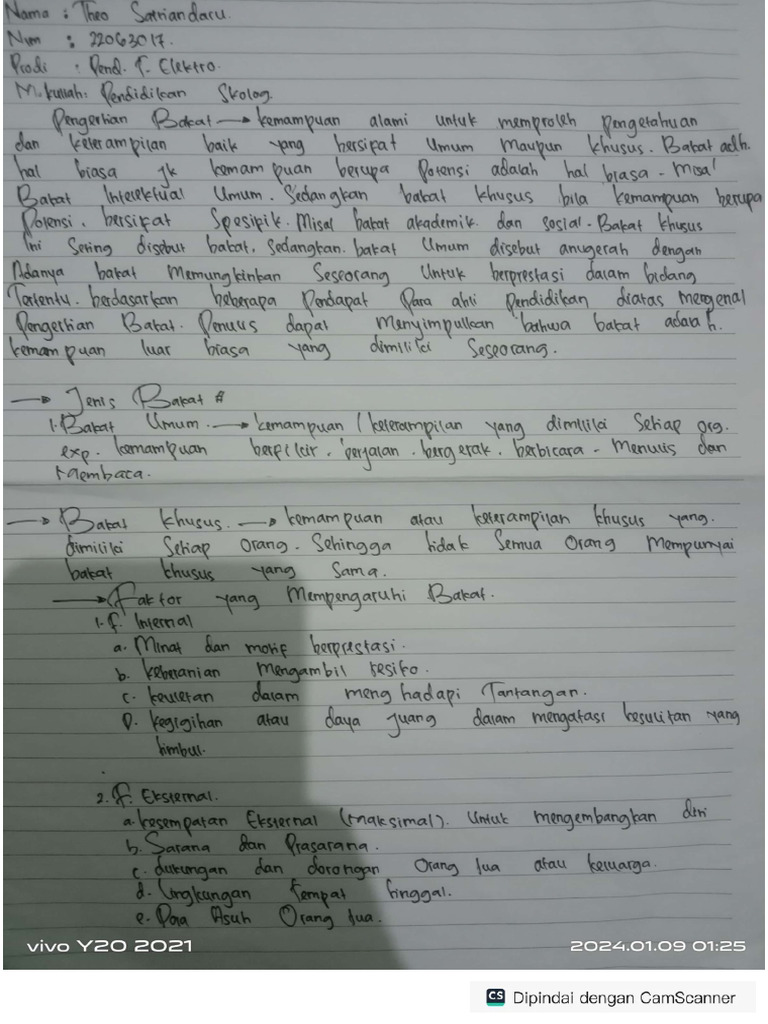 Nama : Theo Satriandaru.
Nim : 22063017.
Prodi : Pend. T. Elektro.
M.kuliah: Pendidikan
Pengertian Bakat → kemampuan alami untuk memproleh pengetahuan
dan keterampilan baik yang bersifat Umum maupun khusus. Bakat adh.
hal biasa jk kemampuan berupa Potensi adalah hal biasa. Misal
Bakat Intelektual Umum. Sedangkan bakat khusus bila kemampuan berupa
Potensi. bersifat Spesifik. Misal bakat akademik dan sosial. Bakat khusus
Ini Sering disebut bakat. Sedangkan bakat Umum disebut anugerah dengan
Adanya bakat Memungkinkan Seseorang Untuk berprestasi dalam bidang
Tertentu. berdasarkan beberapa Pendapat Para ahli Pendidikan diatas mengenal
Pengertian Bakat. Penulis dapat Menyimpulkan bahwa bakat adalah.
kemampuan luar biasa yang dimiliki Seseorang.
→ Jenis Bakat #
1. Bakat Umum. → kemampuan / keterampilan yang dimiliki Setiap org.
exp. kemampuan berpikir. berjalan. bergerak. berbicara - Menulis dan
Membaca.
→ Bakat khusus. → kemampuan atau keterampilan khusus yang.
dimiliki Setiap Orang. Sehingga tidak Semua Orang Mempunyai
bakat khusus yang Sama.
→ Faktor yang Mempengaruhi Bakat.
1. F. Internal
a. Minat dan motif berprestasi.
b. keberanian mengambil resiko.
c. keuletan dalam menghadapi Tantangan.
D. kegigihan atau daya juang dalam mengatasi kesulitan yang
timbul.
2. F. Eksternal.
a. kesempatan Eksternal (Maksimal). Untuk mengembangkan diri
b. Sarana dan Prasarana.
c. dukungan dan dorongan Orang tua atau keluarga.
d. Lingkungan tempat tinggal.
e. Pola Asuh Orang tua.
vivo Y20 2021
2024.01.09 01:25
CS Dipindai dengan CamScanner